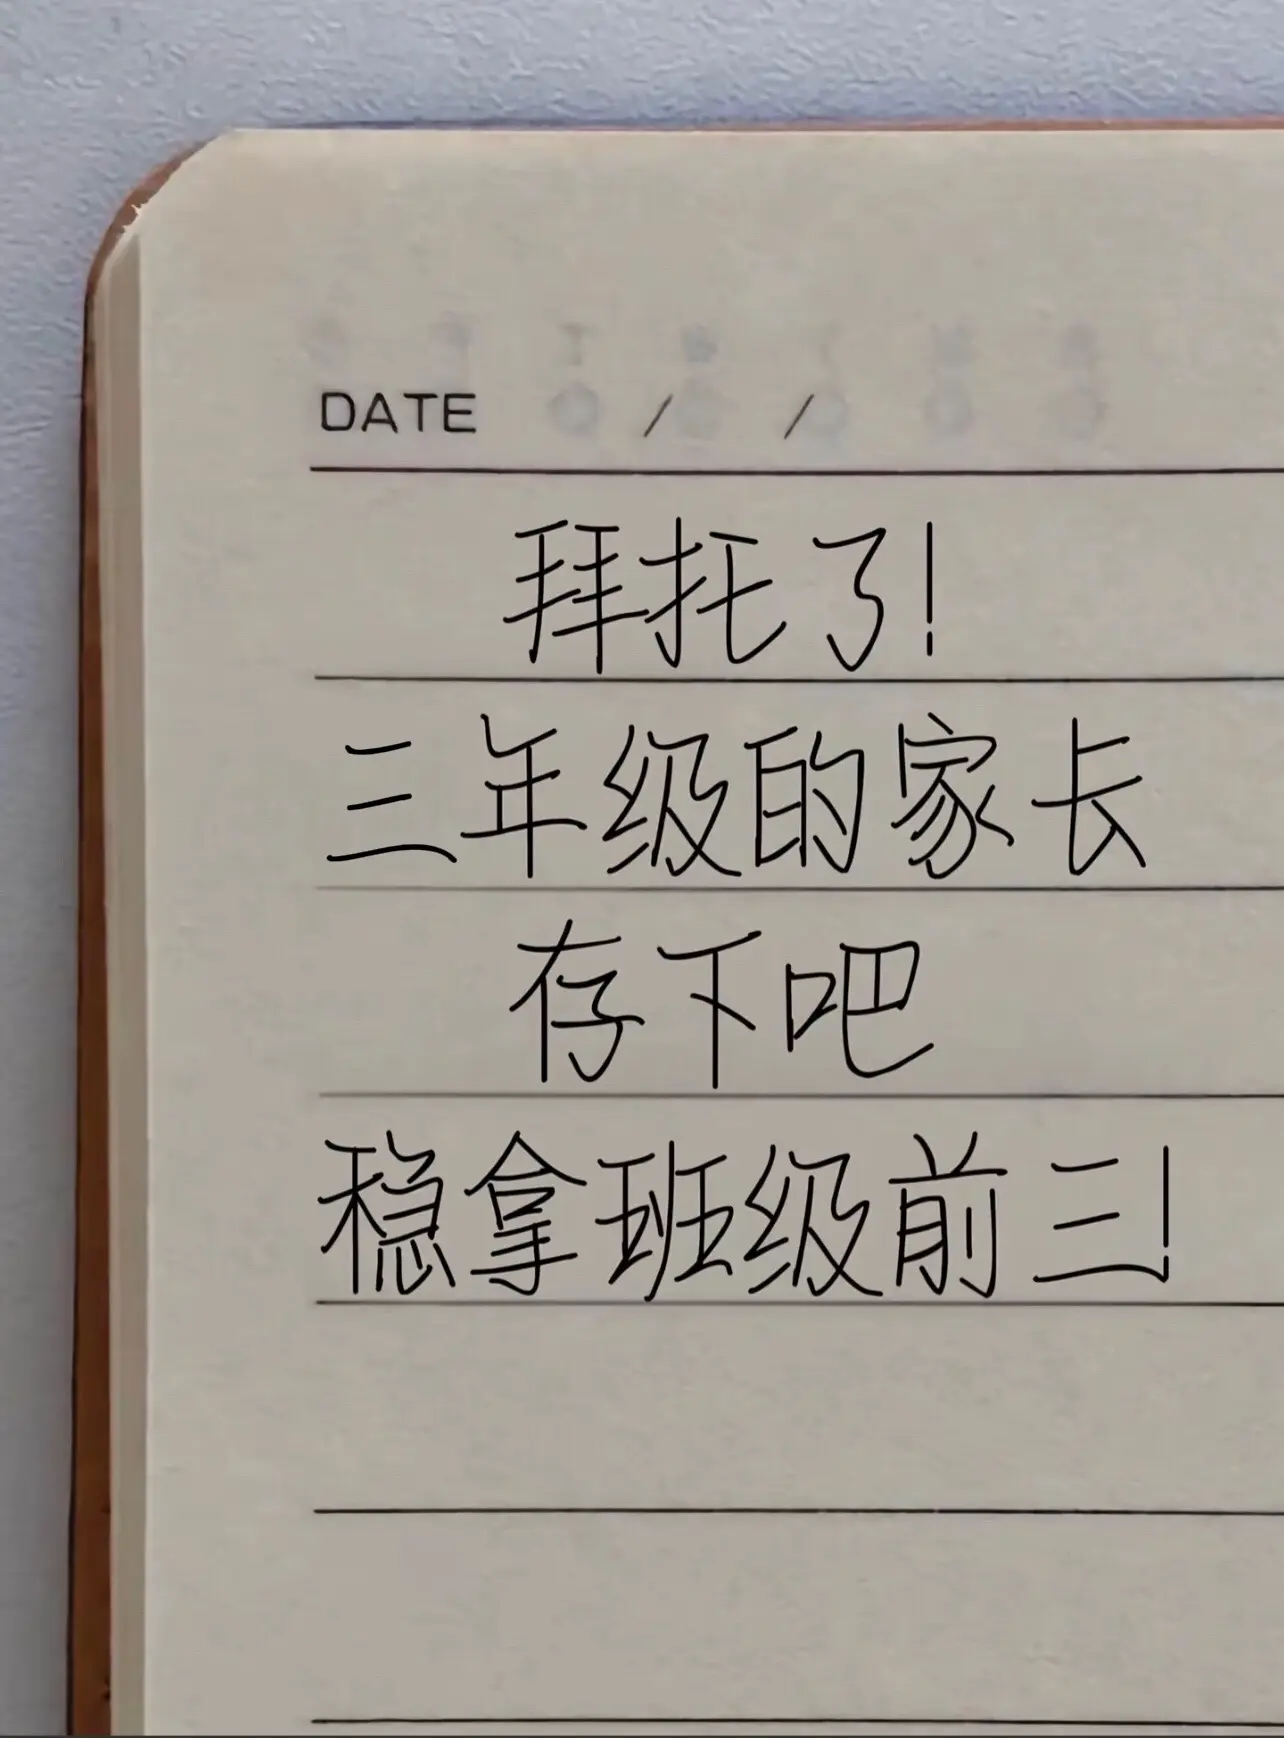 DATE / /
拜托了!
三年级的家长
存下吧
稳拿班级前三!